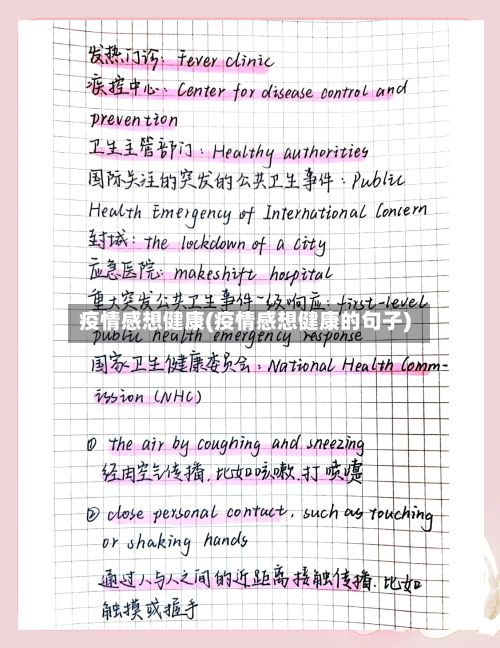 发热门诊: Fever clinic
疾控中心: Center for disease control and
prevention
卫生主管部门: Healthy authorities
国际关注的突发的公共卫生事件: Public
Health Emergency of International Concern
封城: the lockdown of a city
应急医院: makeshift hospital
重大突发公共卫生事件一级响应: first-level
疫情感想健康(疫情感想健康的句子)
public health emergency response
国家卫生健康委员会: National Health Comm-
ission (NHC)
① the air by coughing and sneezing
经由空气传播, 比如咳嗽, 打喷嚏
② close personal contact, such as touching
or shaking hands
通过人与人之间的近距离接触传播, 比如
触摸或握手